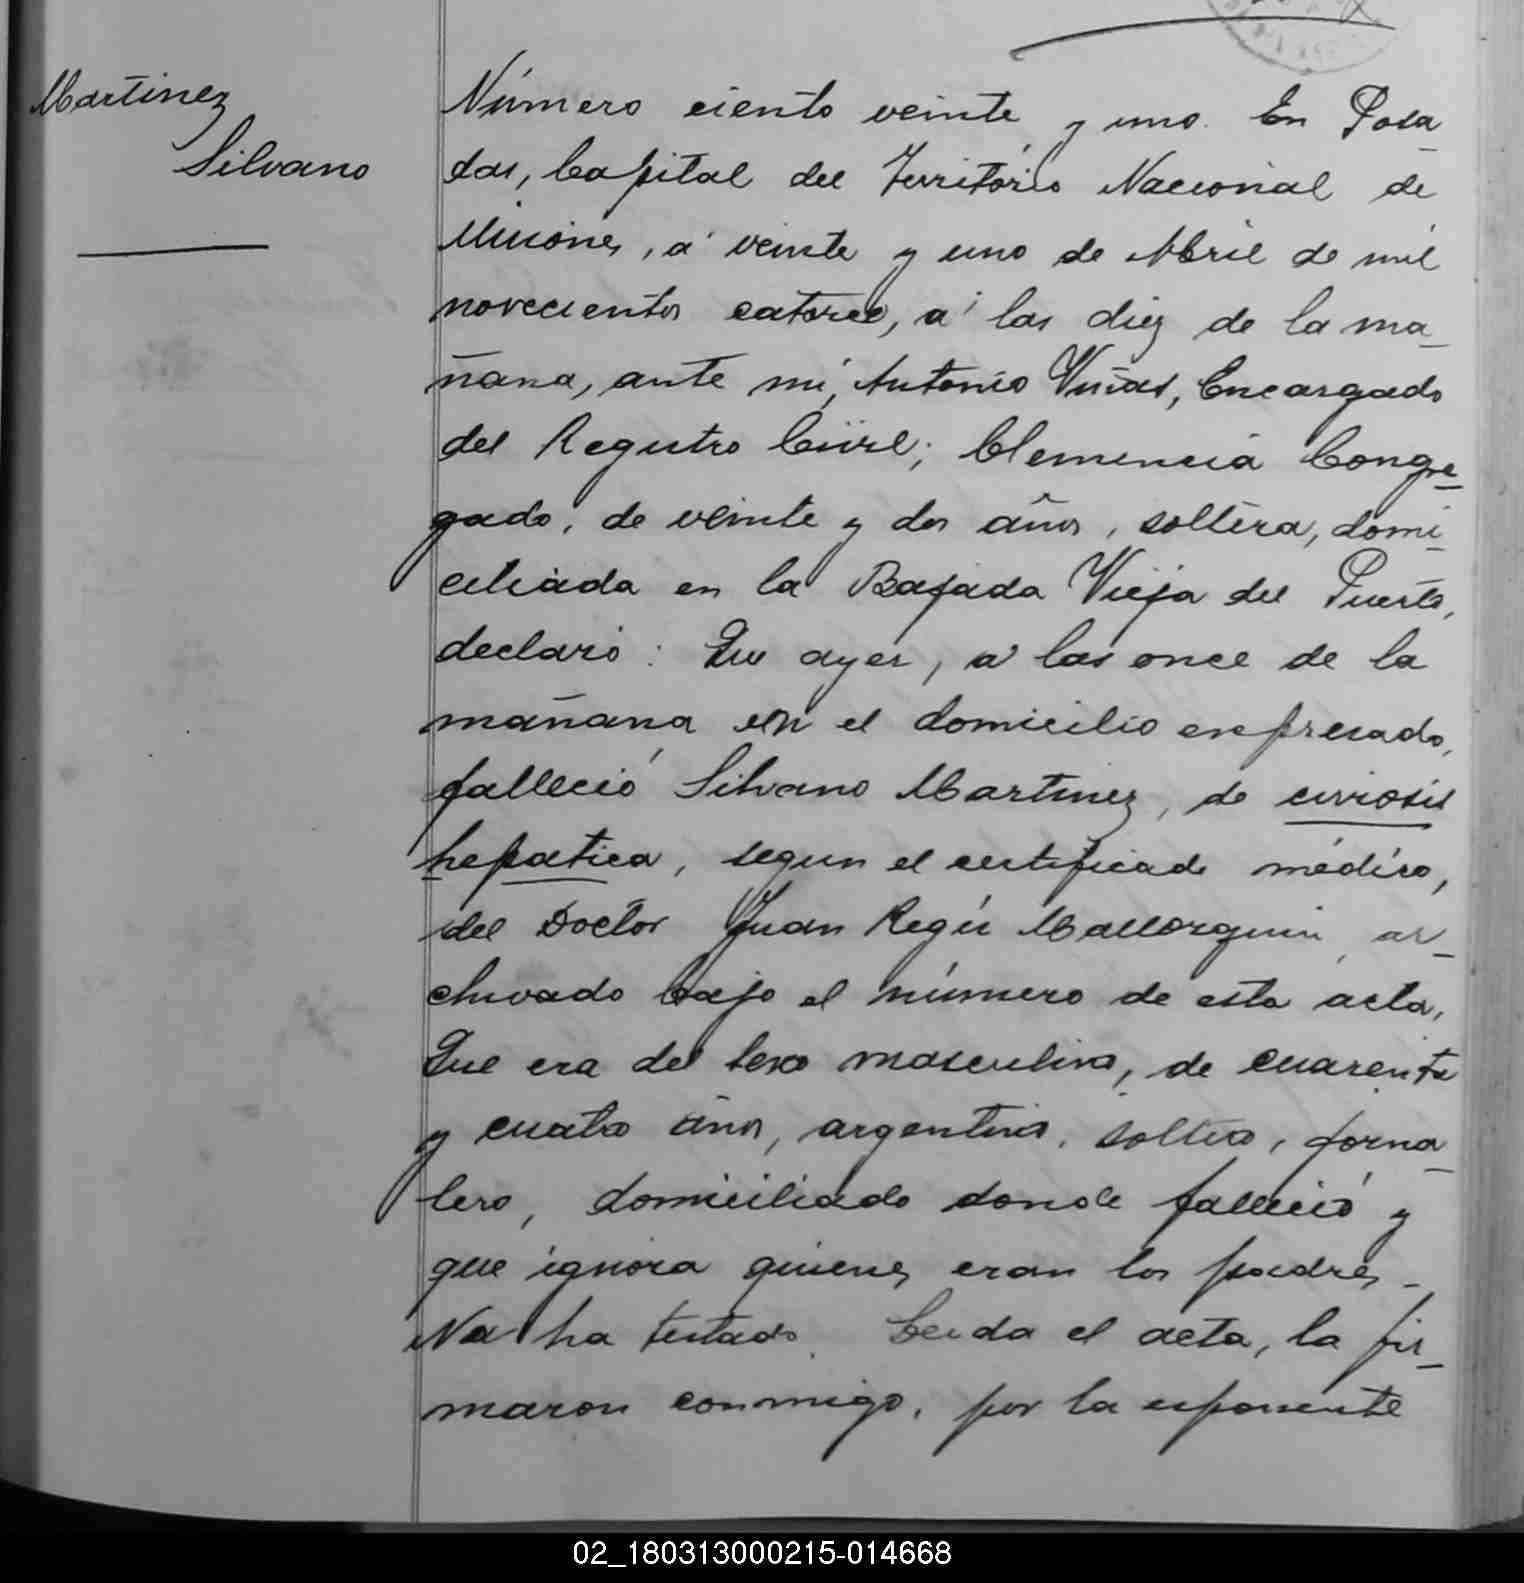 Martinez
Silvano
Número ciento veinte y uno. En Posa-
das, Capital del Territorio Nacional de
Misiones, á veinte y uno de Abril de mil
novecientos catorce, á las diez de la ma-
ñana, ante mi, Antonio Viñas, Encargado
del Registro Civil; Clemencia Congre-
gado, de veinte y dos años, soltera, domi-
ciliada en la Bajada Vieja del Puerto,
declaró: Que ayer, á las once de la
mañana en el domicilio expresado,
falleció Silvano Martinez, de cirrosis
hepatica, segun el certificado médico,
del Doctor Juan Regis Mallorquin ar-
chivado bajo el número de esta acta,
Que era del sexo masculino, de cuarenta
y cuatro años, argentino, soltero, jorna-
lero, domiciliado donde falleció y
que ignora quienes eran los padres.
No ha testado. Leida el acta, la fir-
maron conmigo, por la exponente
02_180313000215-014668